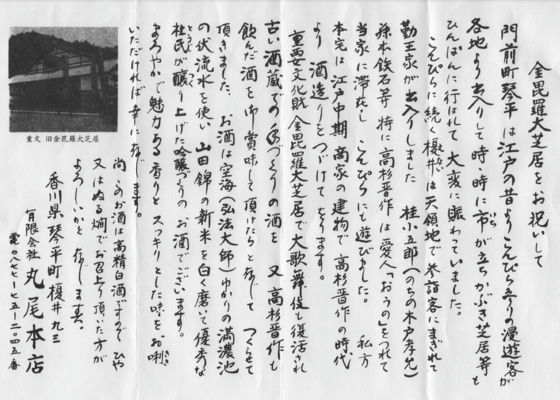 金毘羅をお祝いして
門前町琴平は江戸の昔よりこんぴら参りの漫遊客が
各地より出入りして時、時に市が立ちかぶき芝居等も
ひんぱんに行はれて大変に賑わっていました。
こんぴらに続く榎井は天領地で参詣客にまぎれて
勤王家が出入りしました 桂小五郎(のちの木戸孝允)
孫本鉄石等特に高杉晋作は愛人「おうの」をつれて
当家に滞在しこんぴらにも遊びました。 私方
本宅は江戸中期商家の建物で高杉晋作の時代
より 酒造りをつづけております。
重要文化財金毘羅大芝居で大歌舞伎も復活され
古い酒蔵での手づくりの酒を 又高杉晋作も
飲んだ酒を御賞味して頂けたらと存じて つくらせて
頂きました。 お酒は空海(弘法大師)ゆかりの満濃池
の伏流水を使い 山田錦の新米を白く磨いて優秀な
杜氏が醸り上げた吟醸づくりのお酒でございます。
まろやかで魅力ある香りとスッキリとした味をお唎き
いただければ幸に存じます。
尚このお酒は高精白酒ですので ひや
又はぬる燗でお召上り頂いた方が
よろしいかと存じます。
香川県琴平町榎井九三
有限会社 丸尾本店
電〇八七七-七五-二〇四五番
重文 旧金毘羅大芝居